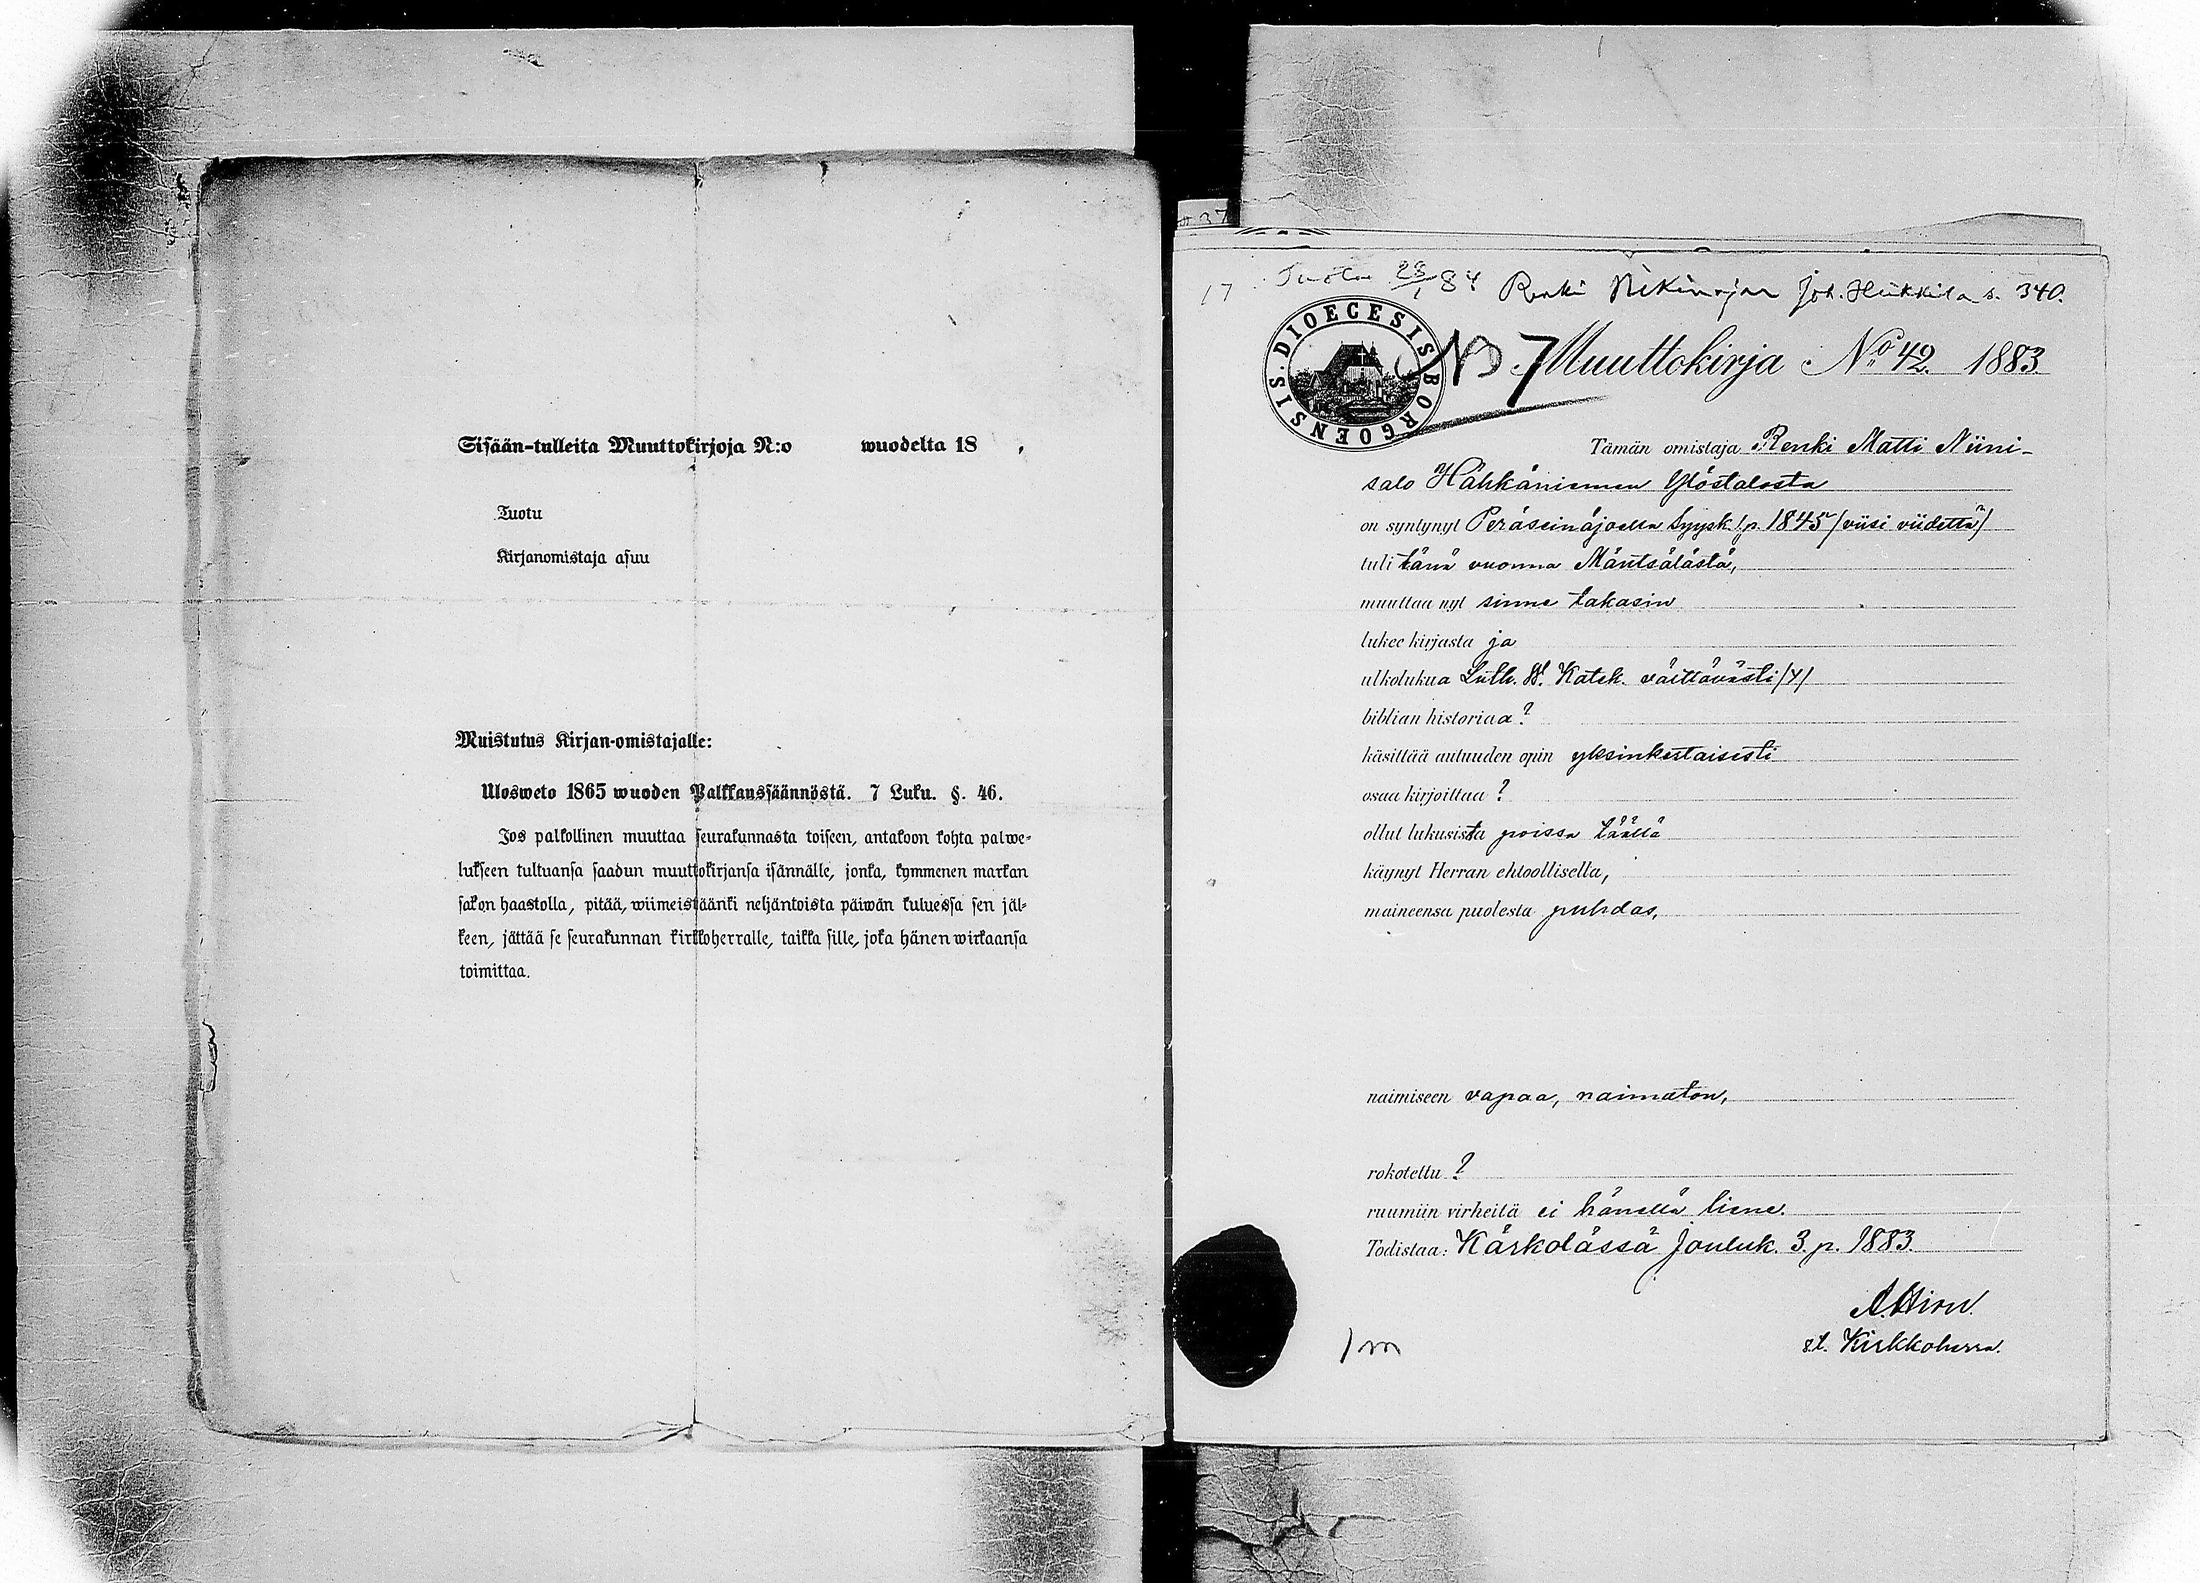 Sisään-tulleita Muuttokirjoja N:o wuodelta 18 .
Tuotu
Kirjanomistaja asuu
Muistutus Kirjan-omistajalle:
Ulosweto 1865 wuoden Palkkaussäännöstä. 7 Luku. §. 46.
Jos palkollinen muuttaa seurakunnasta toiseen, antakoon kohta palwe-
lukseen tultuansa saadun muuttokirjansa isännälle, jonka, kymmenen markan
sakon haastolla, pitää, wiimeistäänki neljäntoista päiwän kuluessa sen jäl-
keen, jättää se seurakunnan kirkkoherralle, taikka sille, joka hänen wirkaansa
toimittaa.
37
17 Tuotu 28/1 84 Renki Joh. Heikkila s. 340.
S. DIOECESIS BORGOENSIS
NB 7 Muuttokirja No 42. 1883.
Tämän omistaja Renki Matti Niini-
salo Hähkäniemen Ylöstalosta
on syntynyt Peräseinäjoella Syysk. 1 p. 1845 /viisi viidettä/
tuli tänä vuonna Mäntsälästä,
muuttaa nyt sinne takasin
lukee kirjasta ja
ulkolukua Luth. W. Katek. välttävästi /y/
biblian historiaa ?
käsittää autuuden opin yksinkertaisesti
osaa kirjoittaa ?
ollut lukusista poissa täällä
käynyt Herran ehtoollisella,
maineensa puolesta puhdas,
naimiseen vapaa, naimaton,
rokotettu ?
ruumiin virheitä ei hänellä liene.
Todistaa: Kärkölässä Jouluk. 3. p. 1883.
A. Hirn.
v.t. Kirkkoherra.
1 m